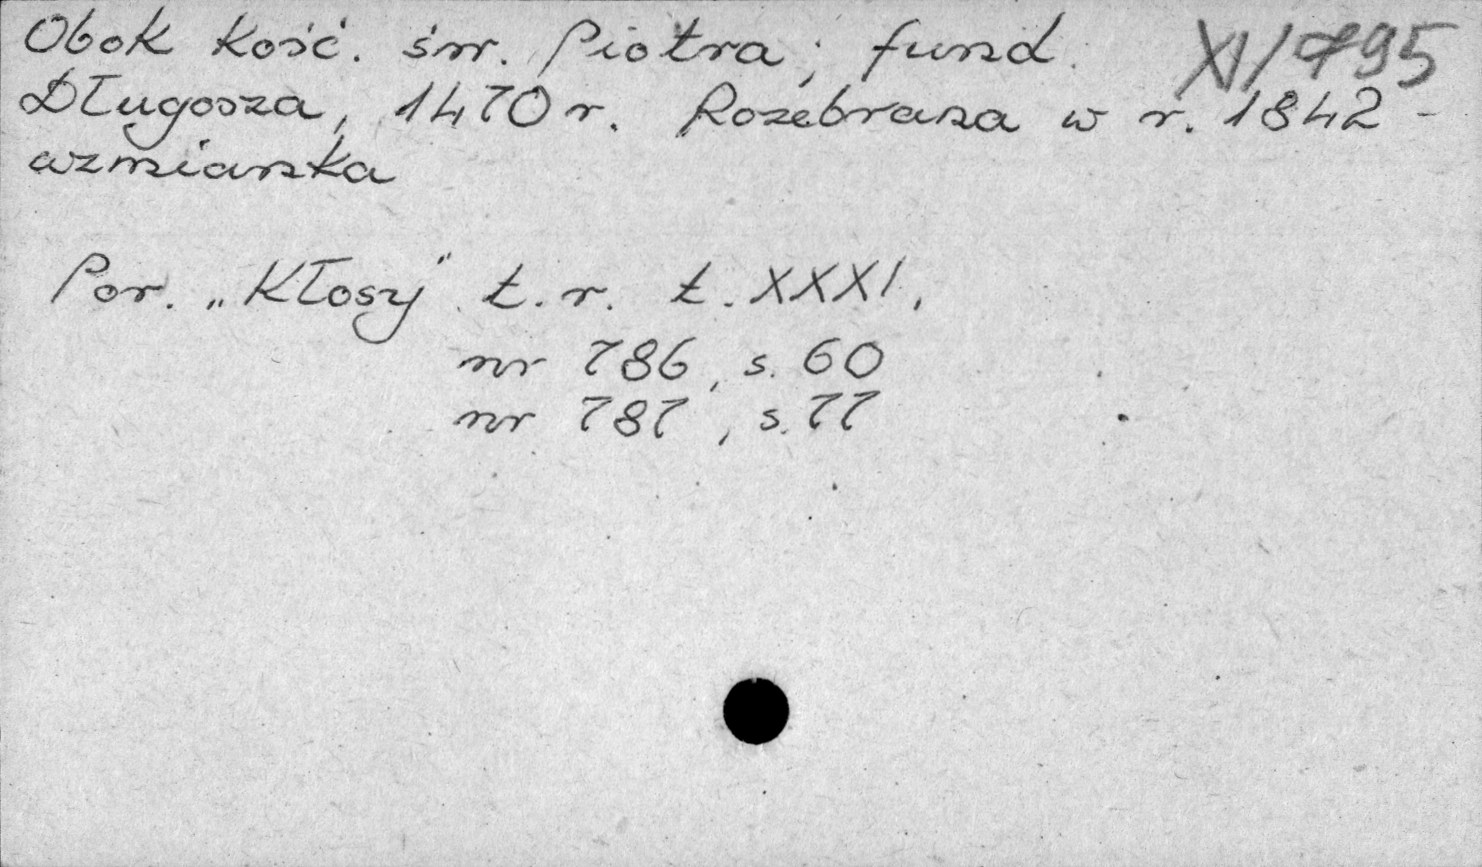 Obok kość. św. Piotra; fund. XI/795
Długosza, 1470 r. Rozebrana w r. 1842 -
wzmianka
Por. „Kłosy" t. r. t. XXXI,
nr 786, s. 60
nr 787, s. 77